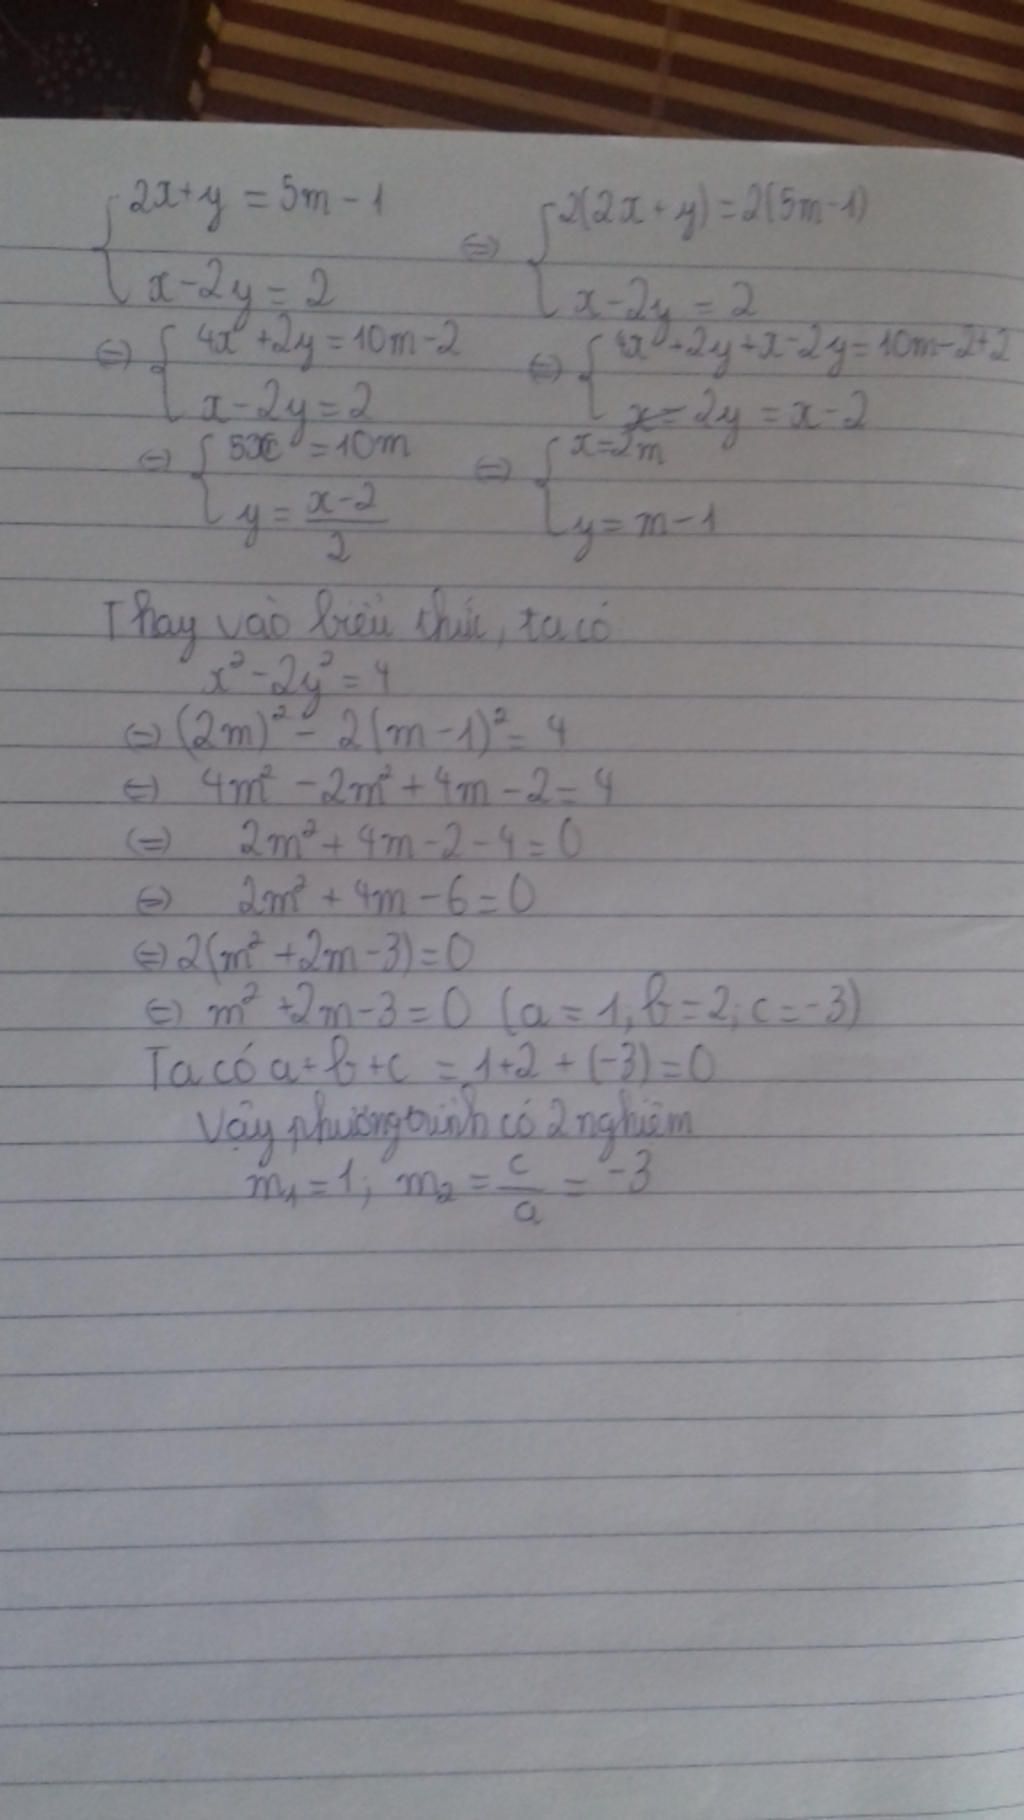 { 2x+y = 5m-1 ⇔ { 2(2x+y)=2(5m-1)
x-2y=2 x-2y=2
⇔ { 4x+2y=10m-2 ⇔ { 4x+2y+x-2y=10m-2+2
x-2y=2 2y=x-2
⇔ { 5x=10m ⇔ { x=2m
y=\frac{x-2}{2} y=m-1
Thay vào biểu thức, ta có
x²-2y²=4
⇔ (2m)²-2(m-1)²=4
⇔ 4m²-2m²+4m-2=4
⇔ 2m²+4m-2-4=0
⇔ 2m²+4m-6=0
⇔ 2(m²+2m-3)=0
⇔ m²+2m-3=0 (a=1; b=2; c=-3)
Ta có a+b+c = 1+2+(-3)=0
Vậy phương trình có 2 nghiệm
m₁=1; m₂=\frac{c}{a}=-3